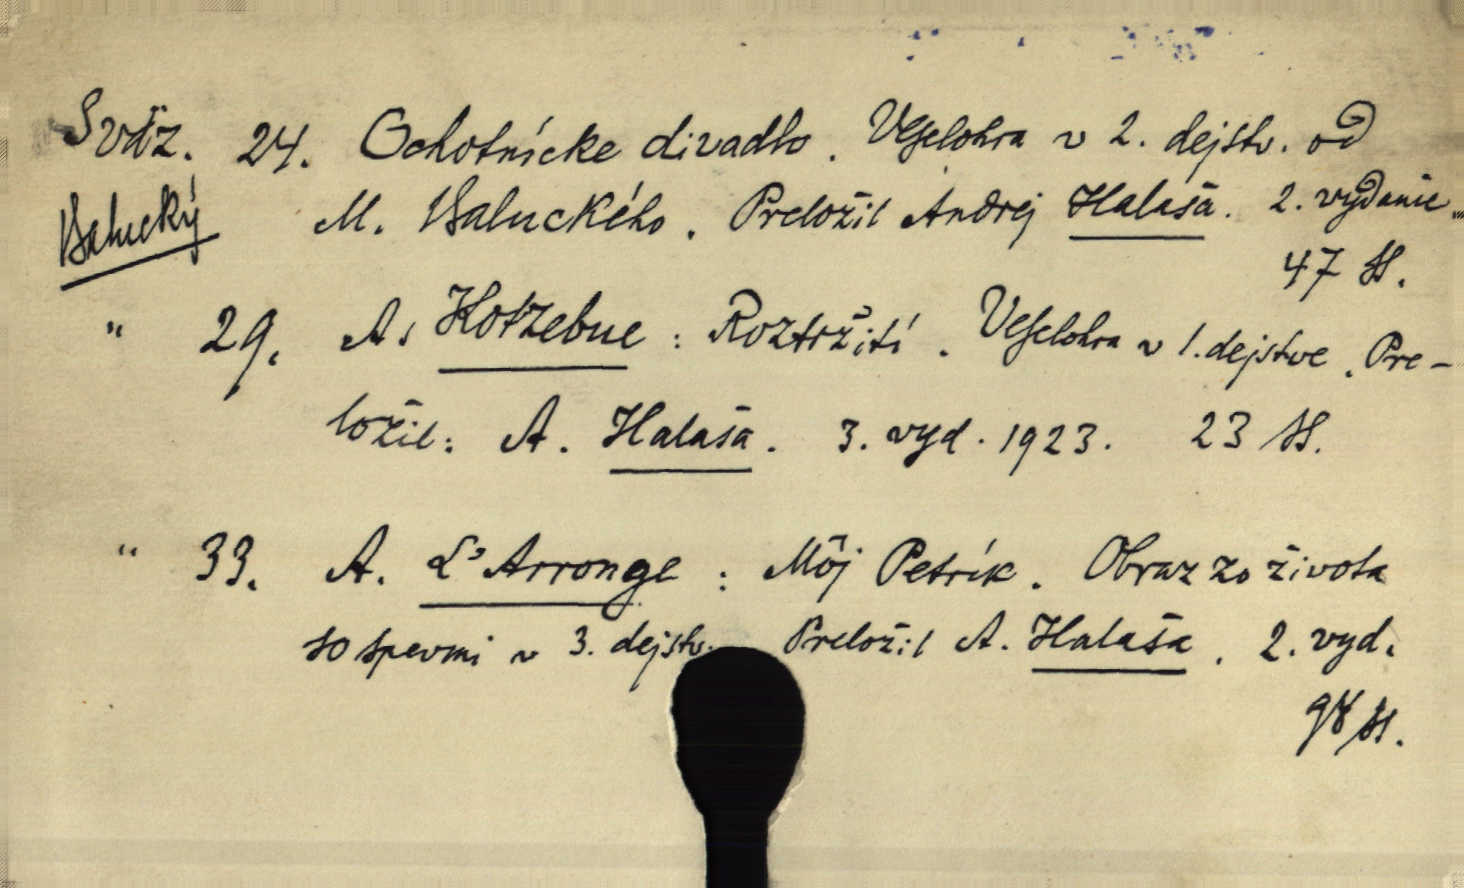 Sväz. 24. Ochotnícke divadlo. Veselohra v 2. dejstv. od
Balucký M. Baluckého. Preložil Andrej Halaša. 2. vydanie
47 ss.
" 29. A. Kotzebue: Roztržití. Veselohra v 1. dejstve. Pre-
ložil: A. Halaša. 3. vyd. 1923. 23 ss.
" 33. A. L'Arronge: Môj Petrík. Obraz zo života
so spevmi v 3. dejstv. Preložil A. Halaša. 2. vyd.
98 ss.